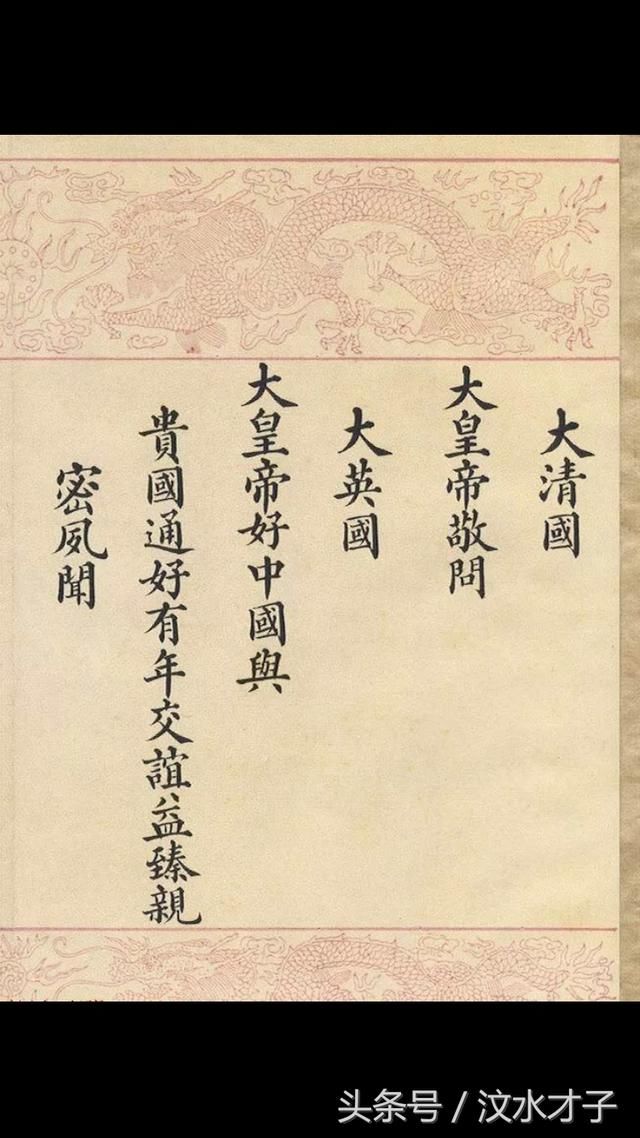 大清國
大皇帝敬問
大英國
大皇帝好中國與
貴國通好有年交誼益臻親
密夙聞
头条号 / 汶水才子